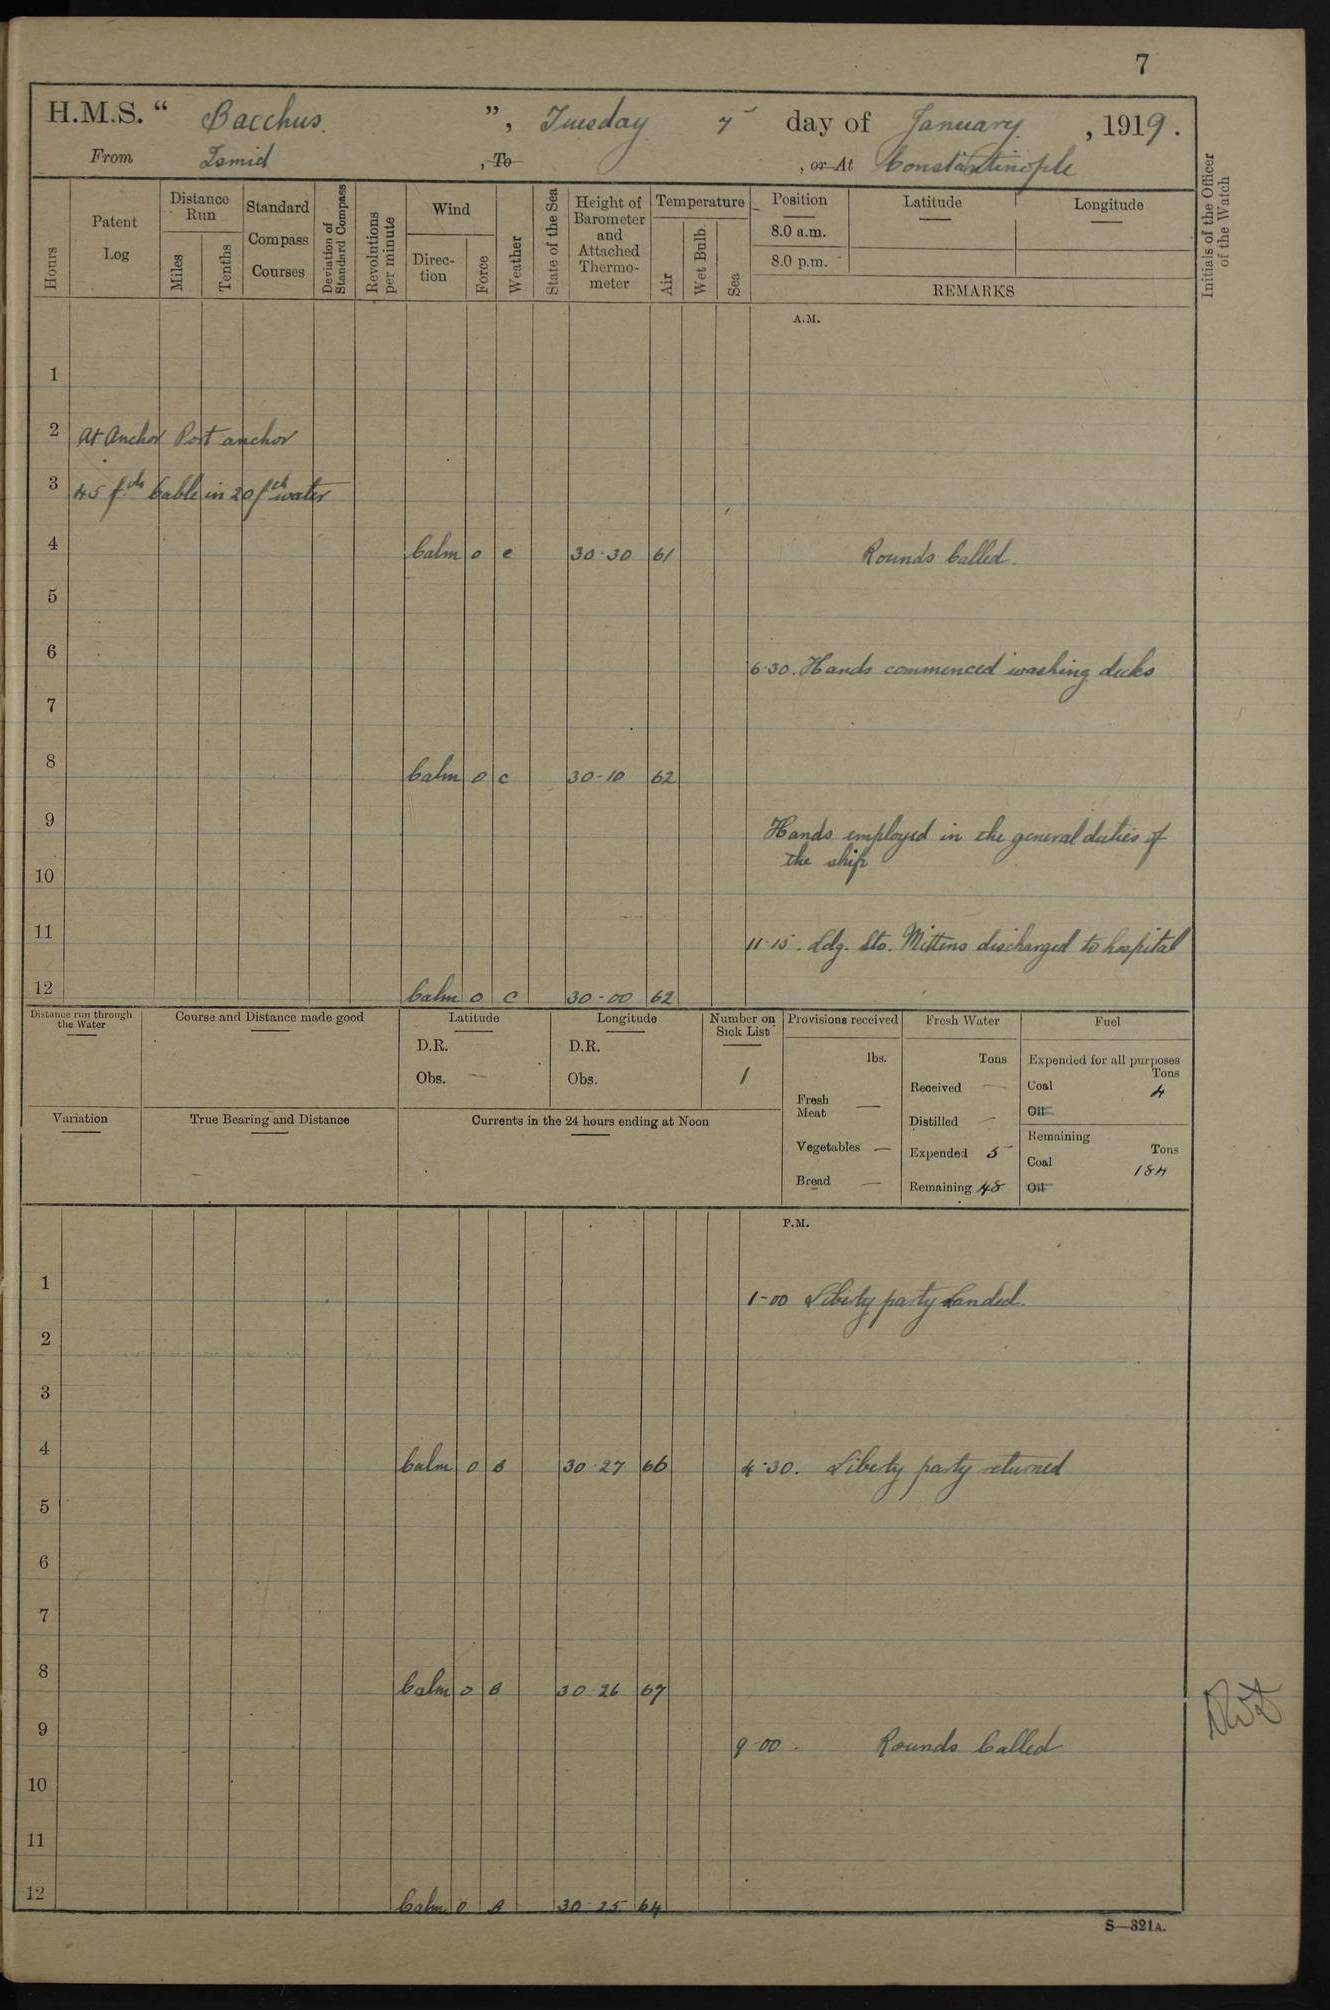 7
H.M.S. “ Bacchus. ”, Tuesday 7 day of January. , 1919.
From Ismid , To , or At Constantinople
Hours
Patent Log
Distance Run
Miles
Tenths
Standard Compass Courses
Deviation of Standard Compass
Revolutions per minute
Wind
Direction
Force
Weather
State of the Sea
Height of Barometer and Attached Thermometer
Temperature
Air
Wet Bulb.
Sea
Position
8.0 a.m.
8.0 p.m.
Latitude
Longitude
REMARKS
Initials of the Officer of the Watch
A.M.
1
2 At Anchor Port anchor
3 45 fths Cable in 20 fth water
4 Calm 0 c 30.30 61 Rounds Called.
5
6 6.30. Hands commenced washing decks
7
8 Calm 0 c 30-10 62
9 Hands employed in the general duties of
the ship
10
11 11.15. Ldg. Sto. Mittens discharged to hospital
12 Calm 0 c 30-00 62
Distance run through the Water
Course and Distance made good
Latitude
D.R.
Obs. —
Longitude
D.R.
Obs.
Number on Sick List
1
Provisions received
lbs.
Fresh Meat —
Vegetables —
Bread —
Fresh Water
Tons
Received —
Distilled —
Expended 5
Remaining 48
Fuel
Expended for all purposes
Tons
Coal 4
Oil
Remaining
Tons
Coal 184
Oil
Variation
True Bearing and Distance
Currents in the 24 hours ending at Noon
P.M.
1 1-00 Liberty party Landed.
2
3
4 Calm 0 B 30.27 66 4.30. Liberty party returned
5
6
7
8 Calm 0 B 30.26 67
9 9-00. Rounds Called
10
11
12 Calm 0 B 30.25 64
S—321A.